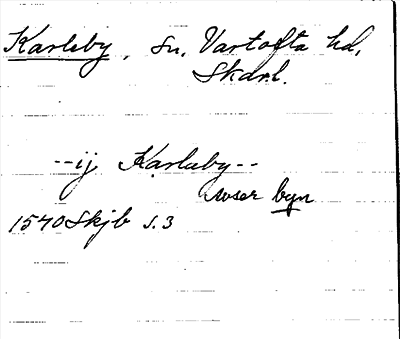 Karleby, sn, Vartofta hd,
Skarl.
--ij Karlaby--
avser byn
1540 Skjb s.3